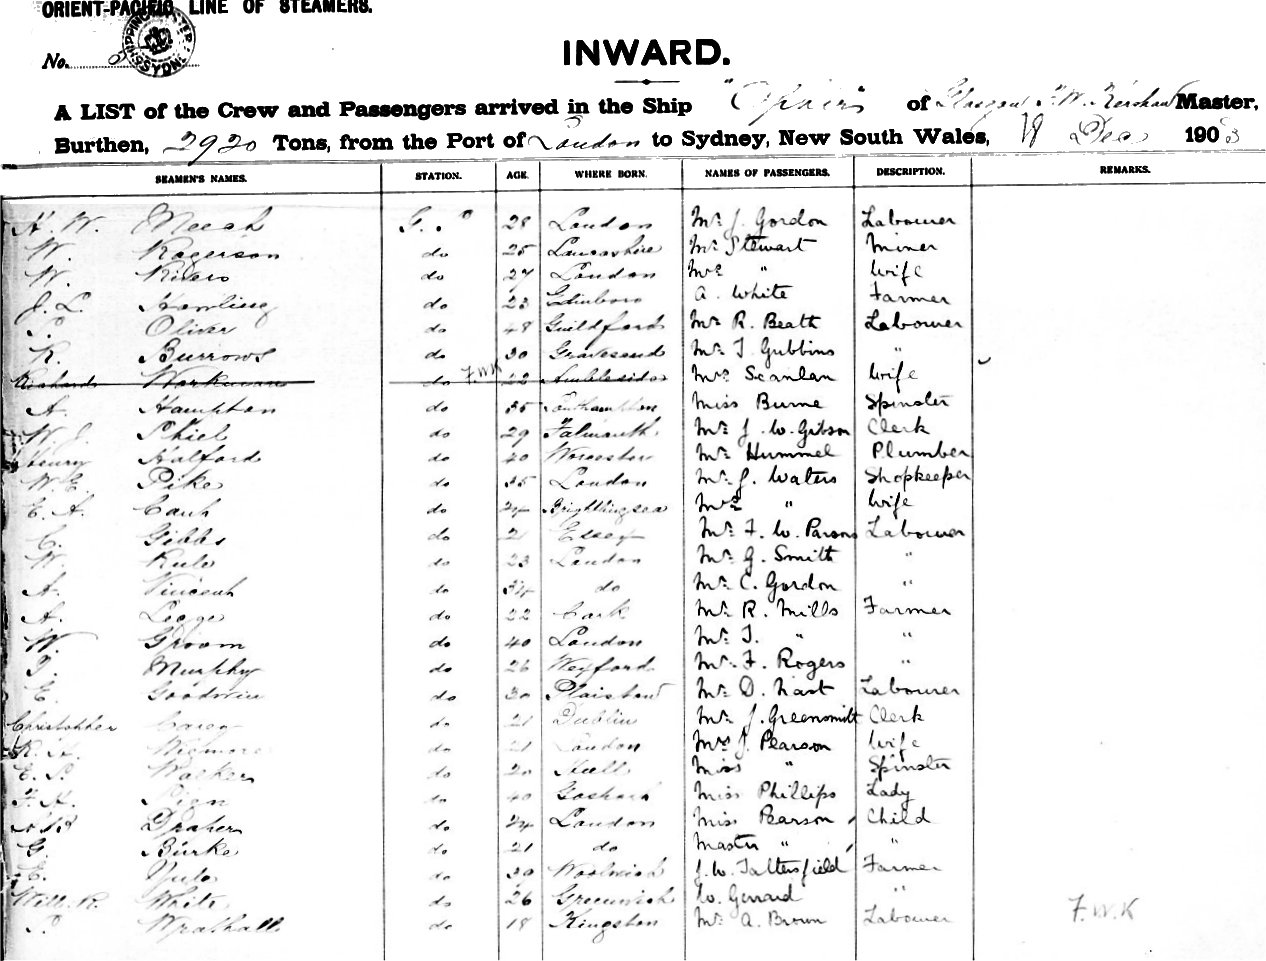 ORIENT-PACIFIC LINE OF STEAMERS.
No.
INWARD.
A LIST of the Crew and Passengers arrived in the Ship "Ophir" of Glasgow F.W. Kershaw Master,
Burthen, 2920 Tons, from the Port of London to Sydney, New South Wales, 18 Dec 1903
SEAMEN'S NAMES. STATION. AGE. WHERE BORN. NAMES OF PASSENGERS. DESCRIPTION. REMARKS.
H. W. Meech G.S. 28 London Mr J. Gordon Labourer
W. Rogerson do 25 Lancashire Mr Stewart Miner
W. Rivers do 27 London Mrs " Wife
J. L. Hawling do 23 Edinboro A. White Farmer
Oliver do 48 Guildford Mr R. Beath Labourer
R. Burrows do 30 Gravesend Mr T Gubbins "
Richards Workman do F.W.K 22 Ambleside Mrs Scanlan Wife
A. Hampton do 35 Southampton Miss Burne Spinster
W. J. Phiel do 29 Falmouth Mr J. W. Gibson Clerk
Henry Halford do 40 Worcester Mr Hummel Plumber
W. E. Pike do 35 London Mr J. Waters Shopkeeper
E. A. do 24 Brightlingsea Mrs " Wife
C. Gibbs do 21 Essex Mr F. W. Parsons Labourer
W. Rule do 23 London Mr G. Smith "
A. Vincent do 34 do Mr C. Gordon "
A. Legge do 22 Cork Mr R. Mills Farmer
W. Groom do 40 London Mr T. " "
T. Murphy do 26 Wexford Mr F. Rogers "
E. Goodwin do 30 Plaistow Mr D. Nast Labourer
Christopher Carey do 21 Dublin Mr J. Greensmith Clerk
R. A. Wigmore do 21 London Mrs J. Pearson Wife
E. P. Walker do 20 Hull Miss " Spinster
F. H. do 40 Gosport Miss Phillips Lady
Draper do 24 London Miss Pearson Child
G. Burke do 21 do Master " "
E. Yule do 30 Woolwich J. W. Tattersfield Farmer
Will. R. White do 26 Greenwich W. Gerrard "
P. Wrathall do 18 Kingston Mr A. Brown Labourer F.W.K